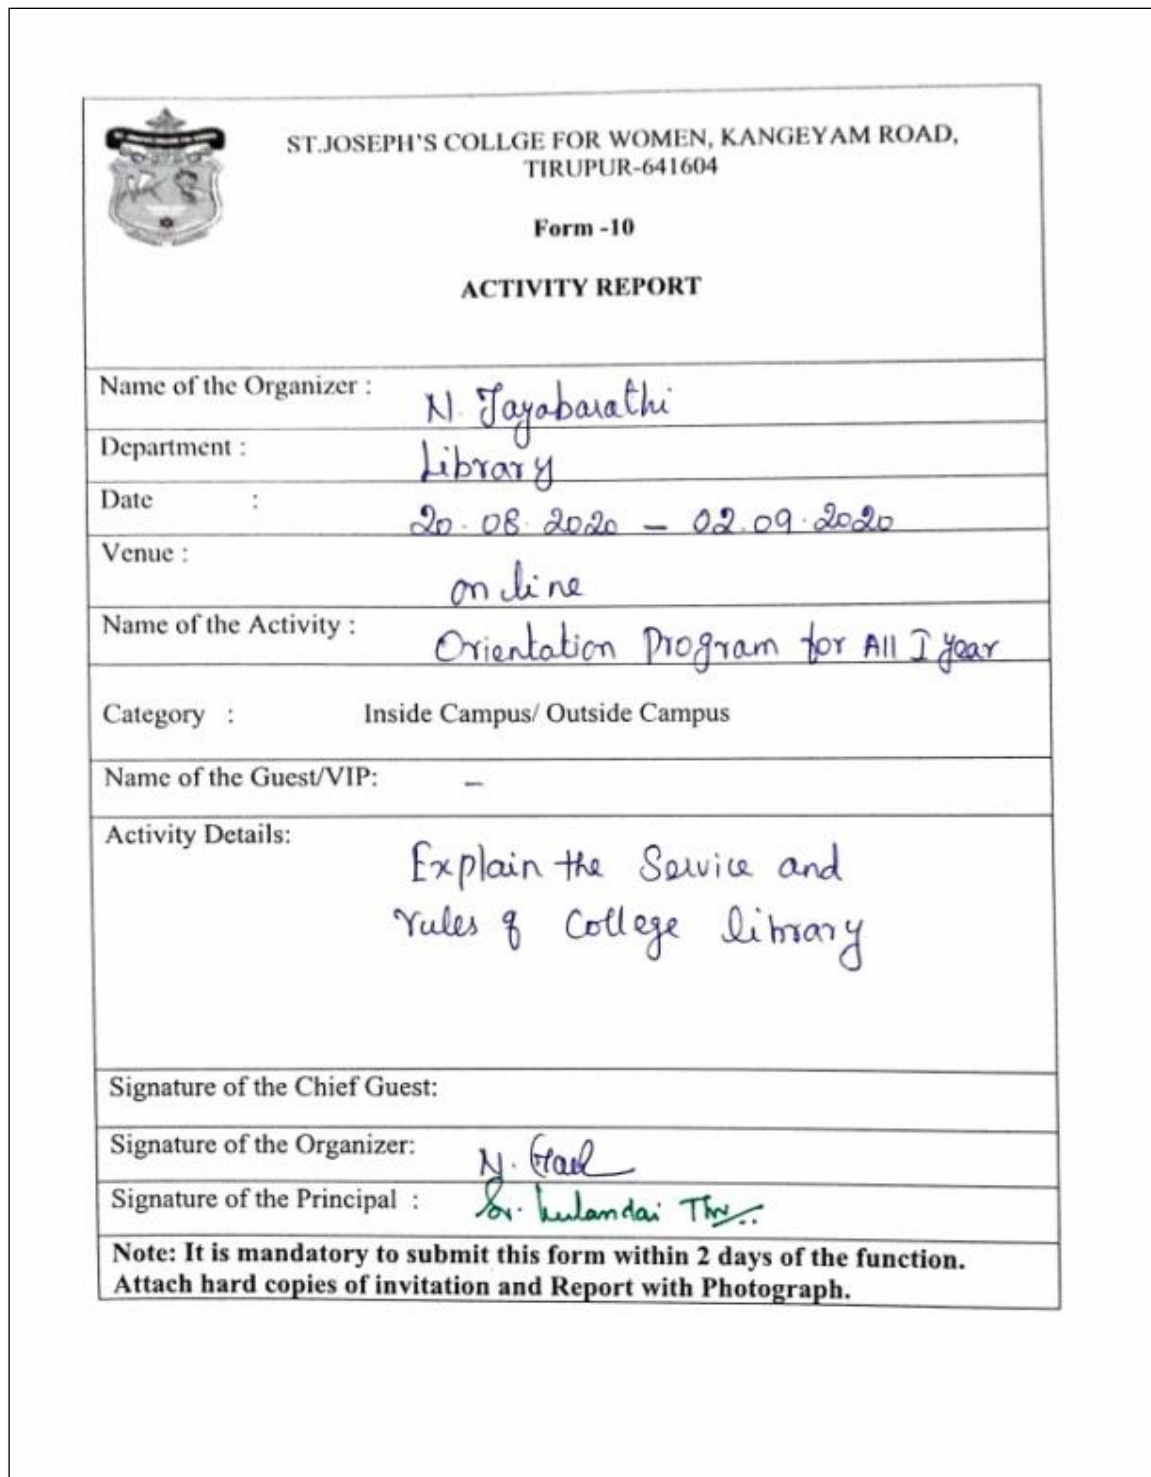 ST.JOSEPH'S COLLGE FOR WOMEN, KANGEYAM ROAD,
TIRUPUR-641604
Form -10
ACTIVITY REPORT
Name of the Organizer : N. Jayabarathi
Department : Library
Date : 20.08.2020 – 02.09.2020
Venue : online
Name of the Activity : Orientation Program for All I year
Category : Inside Campus/ Outside Campus
Name of the Guest/VIP: –
Activity Details: Explain the Service and
rules of College library
Signature of the Chief Guest:
Signature of the Organizer: N.
Signature of the Principal : Sr. Kulandai
Note: It is mandatory to submit this form within 2 days of the function.
Attach hard copies of invitation and Report with Photograph.